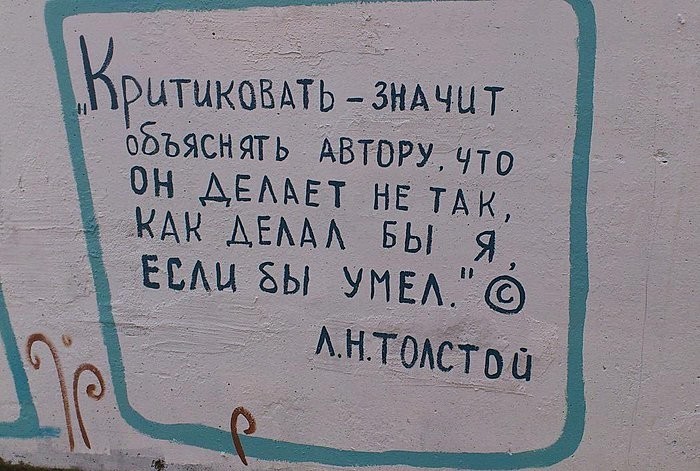 „Критиковать – значит
объяснять автору, что
он делает не так,
как делал бы я,
если бы умел." ©
Л.Н.Толстой